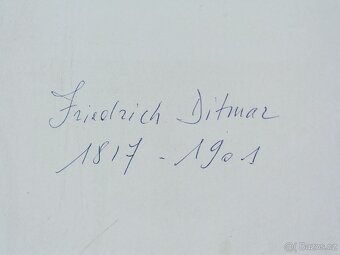 Friedrich Ditmar
1817 - 1901
© Bazos.cz